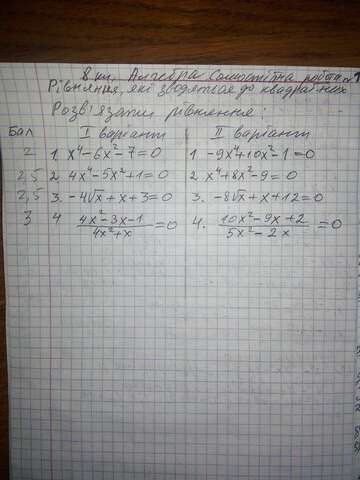 8 кл. Алгебра Самостійна робота №1
Рівняння, які зводяться до квадратних
Розв'язати рівняння:
Бал I варіант II варіант
2 1. x⁴-6x²-7=0 1. -9x⁴+10x²-1=0
2,5 2. 4x⁴-5x²+1=0 2. x⁴+8x²-9=0
2,5 3. -4√x+x+3=0 3. -8√x+x+12=0
3 4 (4x²-3x-1)/(4x²+x)=0 4. (10x²-9x+2)/(5x²-2x)=0